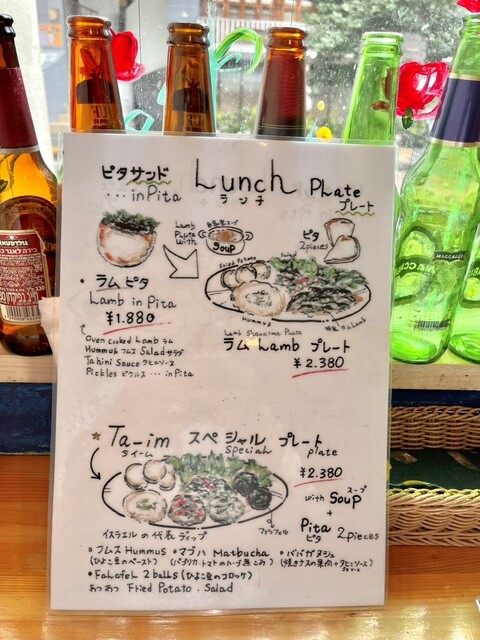 ピタサンド
...in Pita
Lunch
ランチ
PLate
プレート
Lamb
PLate
with
soup
ピタ
2pieces
Fried Potato
Salad
Hummus
・ラム ピタ
Lamb in Pita
¥1.880
Oven cooked Lamb ラム
Hummus フムス Salad サラダ
Tahini Sauce タヒニソース
Pickles ピクルス ... in Pita
Lamb Shawarma Plate
ラム Lamb プレート
¥2.380
☆ Ta-im スペシャル プレート
タイーム Special plate
¥2.380
with Soup スープ
+
Pita 2pieces
ピタ
イスラエルの代表ディップ
ファラフェル
•フムス Hummus •マブハ Matbucha •ババガヌシュ
(ひよこ豆のペースト) (パプリカ・トマトのハーブ煮こみ) (焼きナスの果肉+タヒニソース)
•Falafel 2 balls (ひよこ豆のコロッケ)
あつあつ Fried Potato . Salad
GOLDSTAR
MACCABEE